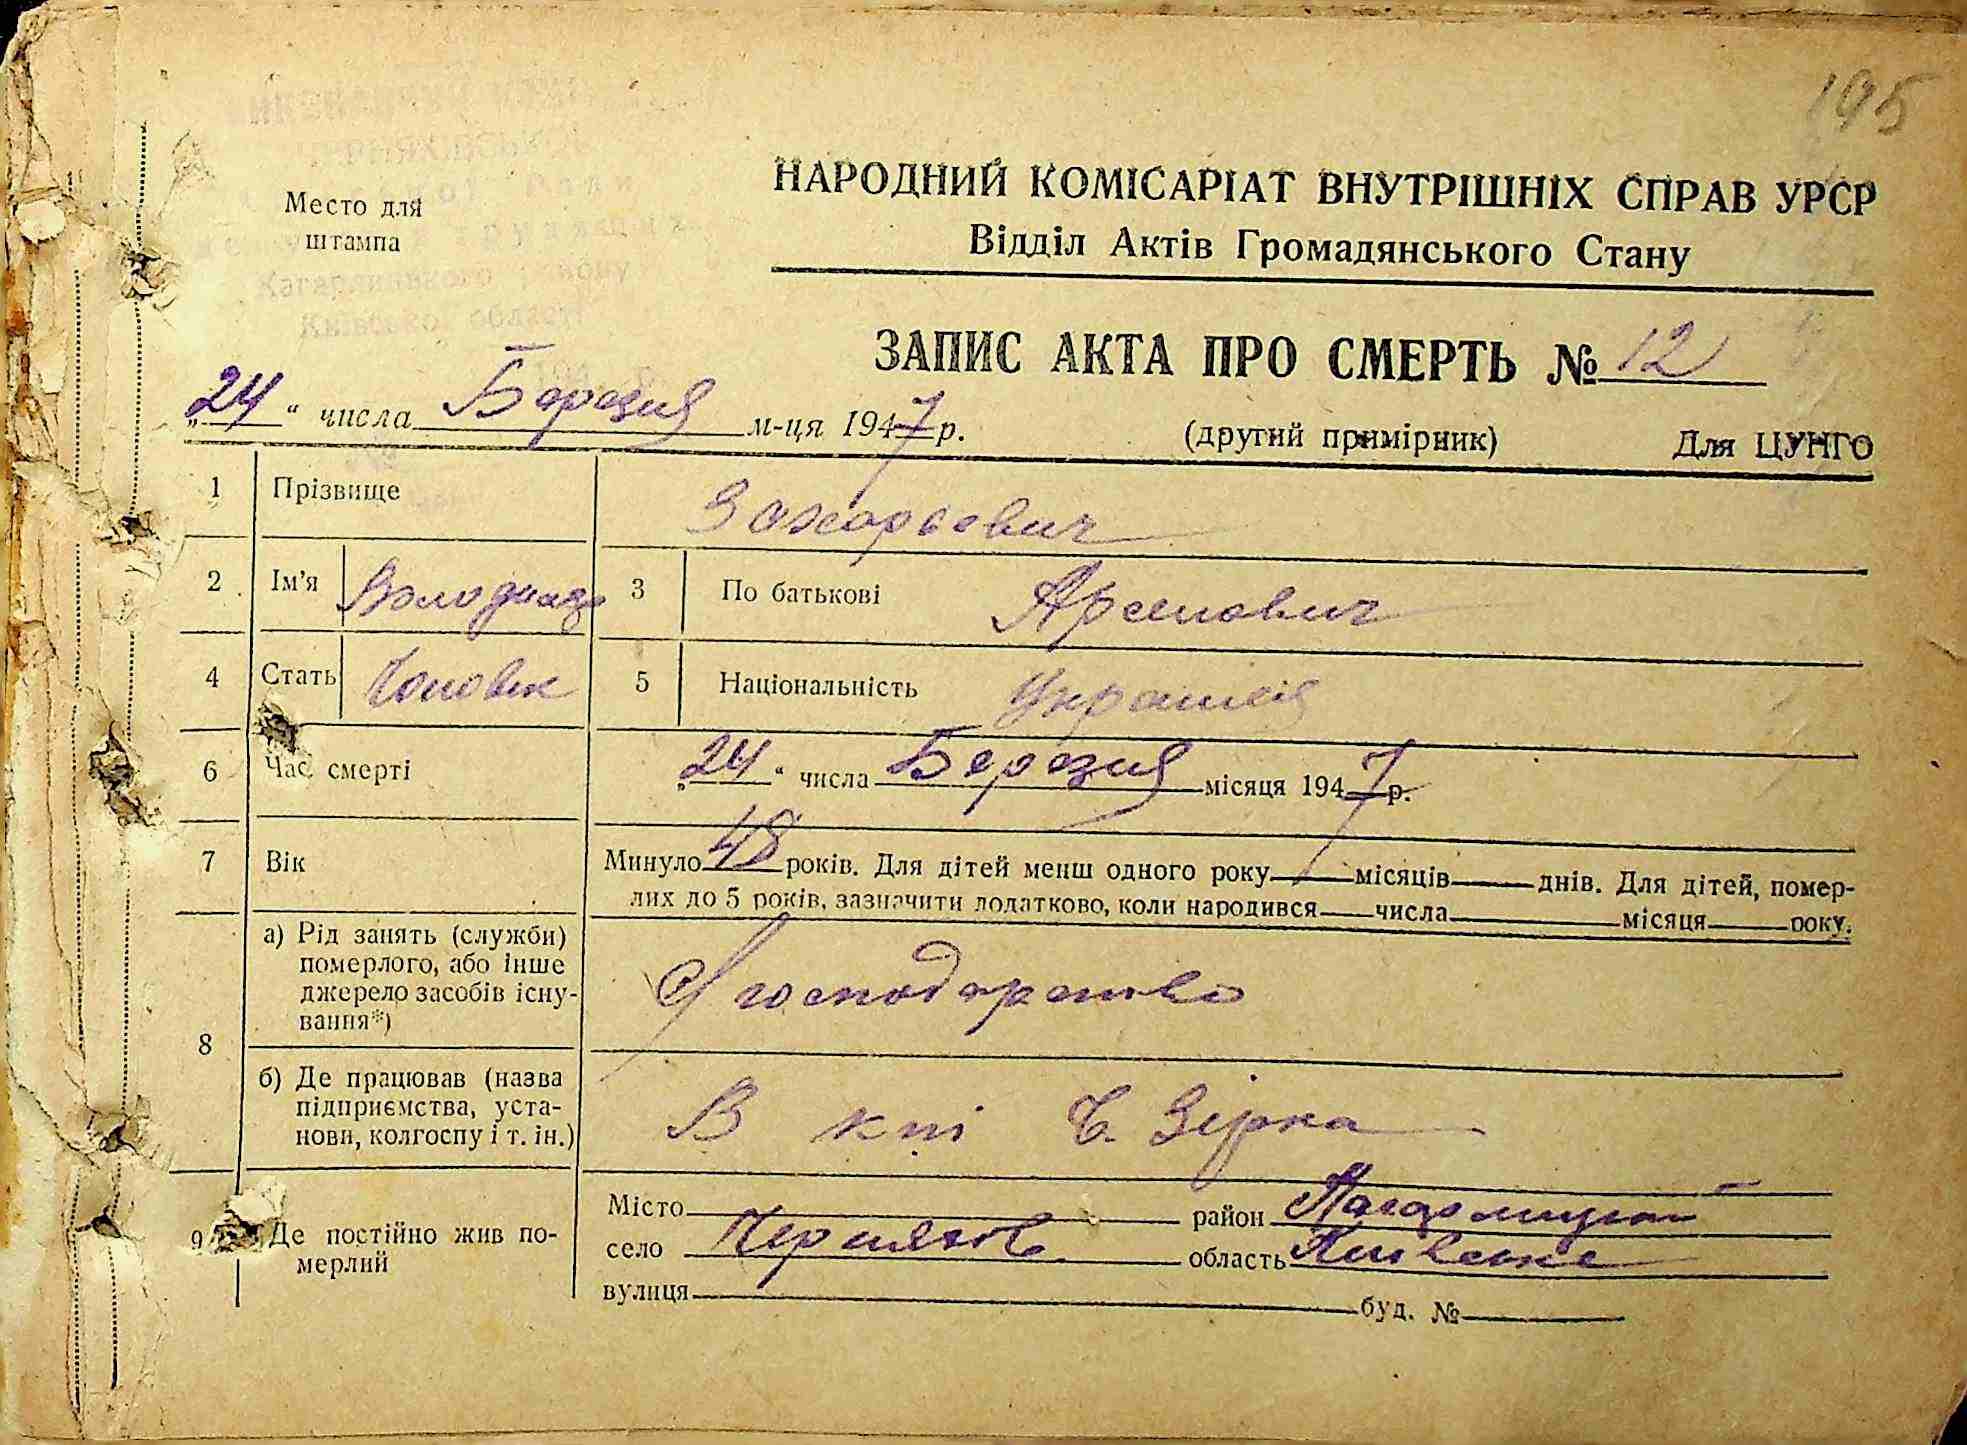 195
Место для
штампа
НАРОДНИЙ КОМІСАРІАТ ВНУТРІШНІХ СПРАВ УРСР
Відділ Актів Громадянського Стану
ЗАПИС АКТА ПРО СМЕРТЬ № 12
„24“ числа Березня м-ця 1947 р.
(другий примірник) Для ЦУНГО
1 Прізвище Захарьевич
2 Ім’я Володимир 3 По батькові Арсенович
4 Стать Чоловік 5 Національність
6 Час смерті „24“ числа Березня місяця 1947 р.
7 Вік Минуло 48 років. Для дітей менш одного року місяців днів. Для дітей, помер-
лих до 5 років, зазначити додатково, коли народився числа місяця року.
8 а) Рід занять (служби)
померлого, або інше
джерело засобів існу-
вання*)
С/господарство
б) Де працював (назва
підприємства, уста-
нови, колгоспу і т. ін.)
В кпі Ч. Зірка
9 Де постійно жив по-
мерлий
Місто район
село Черняхов область Київське
вулиця буд. №